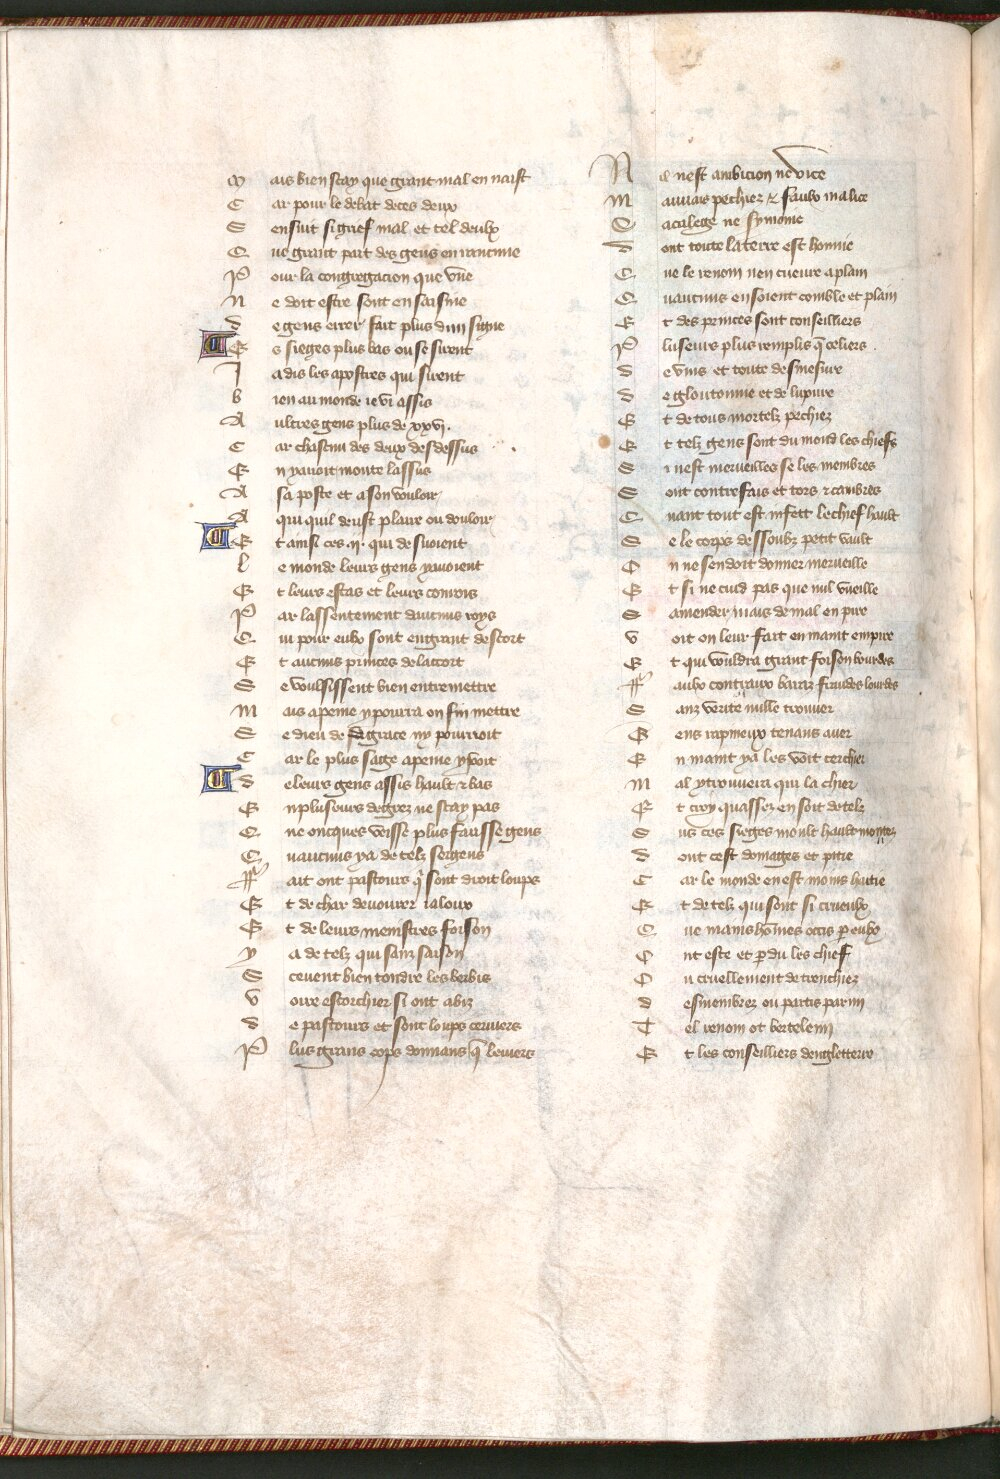 Mais bien scay que grant mal en naist
Car pour le debat de ces deux
Sensuit si grief mal et tel deulx
Que grant part des gens en rancune
Pour la congregacion que vne
Ne doit estre sont en saisine
De gens errer fait plus dun signe
Es sieges plus bas ou se sirent
Jadis les apostres qui sirent
Bien au monde ie vi assis
Aultres gens plus de xxvj.
Car chascun des deux desdessus
En y auoit monte lassus
A sa poste et a son vouloir
A qui quil deust plaire ou douloir
Et ainsi ces .ij. qui desuoient
Le monde leurs gens y auoient
Et leurs estas et leurs conrois
Par lassentement daucuns roys
Qui pour eulx sont en grant descort
Et aucuns princes de laccort
Se voulsissent bien entremettre
Mais a peine y pourra on fin mettre
Se dieu de sa grace ny pourvoit
Car le plus sage a peine y voit
De leurs gens assis hault & bas
En pluseurs degrez ne scay pas
Que oncques veisse plus fausse gens
Quaucuns y a de telz sergens
Fait ont pastours q̄ sont droit loups
Et de char deuourer ialoux
Et de leurs menistres foison
Y a de telz qui sanz saison
Sceuent bien tondre les berbis
Voire escorchier si ont abiz
De pastours et sont loups ceruiers
Plus grans cops donnans q̄ leuiers
Il nest ambicion ne vice
Mauuais pechiez & faulx malice
Sacrilege ne symonie
Dont toute la terre est honnie
Que le renom nen cueure a plain
Quaucuns en soient comble et plain
Et des princes sont conseilliers
Pluseurs plus remplis q̄ celiers.
De vins et toute desmesure
De gloutonnie et de luxure
Et de tous mortelz pechiez
Et telz gens sont du mond les chiefs
Si nest merueilles se les membres
Sont contrefais et tors & cambres
Quant tout est infett le chief hault
Se le corps dessoubz petit vault
On ne sen doit donner merueille
Et si ne cuid pas que nul vueille
Samender mais de mal en pire
Voit on leur fait en maint empire
Et qui vouldra grant foison bourdes
Faulx contraux baraz fraudes lourdes
Sanz verite nulle trouuer
Gens rapineux tenans auer
En maint y a les voit cerchier
Mal y trouuera qui la chier
Et croy quassez en soit de telz
Sus ces sieges moult hault montez
Dont cest domages et pitie
Car le monde en est moins haitie
Et de telz qui sont si crueulx
Que mains hōmes occis p eulx
Ont este et pdu les chief
Ou cruellement detrenchiez
Desmembrez ou partis parmi
Tel renom ot bertelemi
Et les conseilliers dengleterre